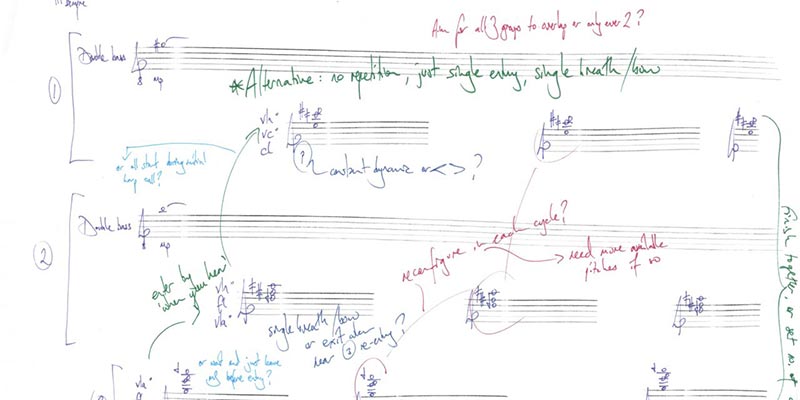 Aim for all 3 groups to overlap or only ever 2?
① Double bass
8 mp
*Alternative: no repetition, just single entry, single breath/bow
vln
vc
cl
or all start during initial
long call?
? constant dynamic or < > ?
② Double bass
mp
reconfigure in each cycle?
need more available
pitches if so
enter by
'when you hear'
vln
fl
vla
single breath/bow
or exit when
hear ② re-entry?
or wait and just leave
before entry?
finish together, or
vla